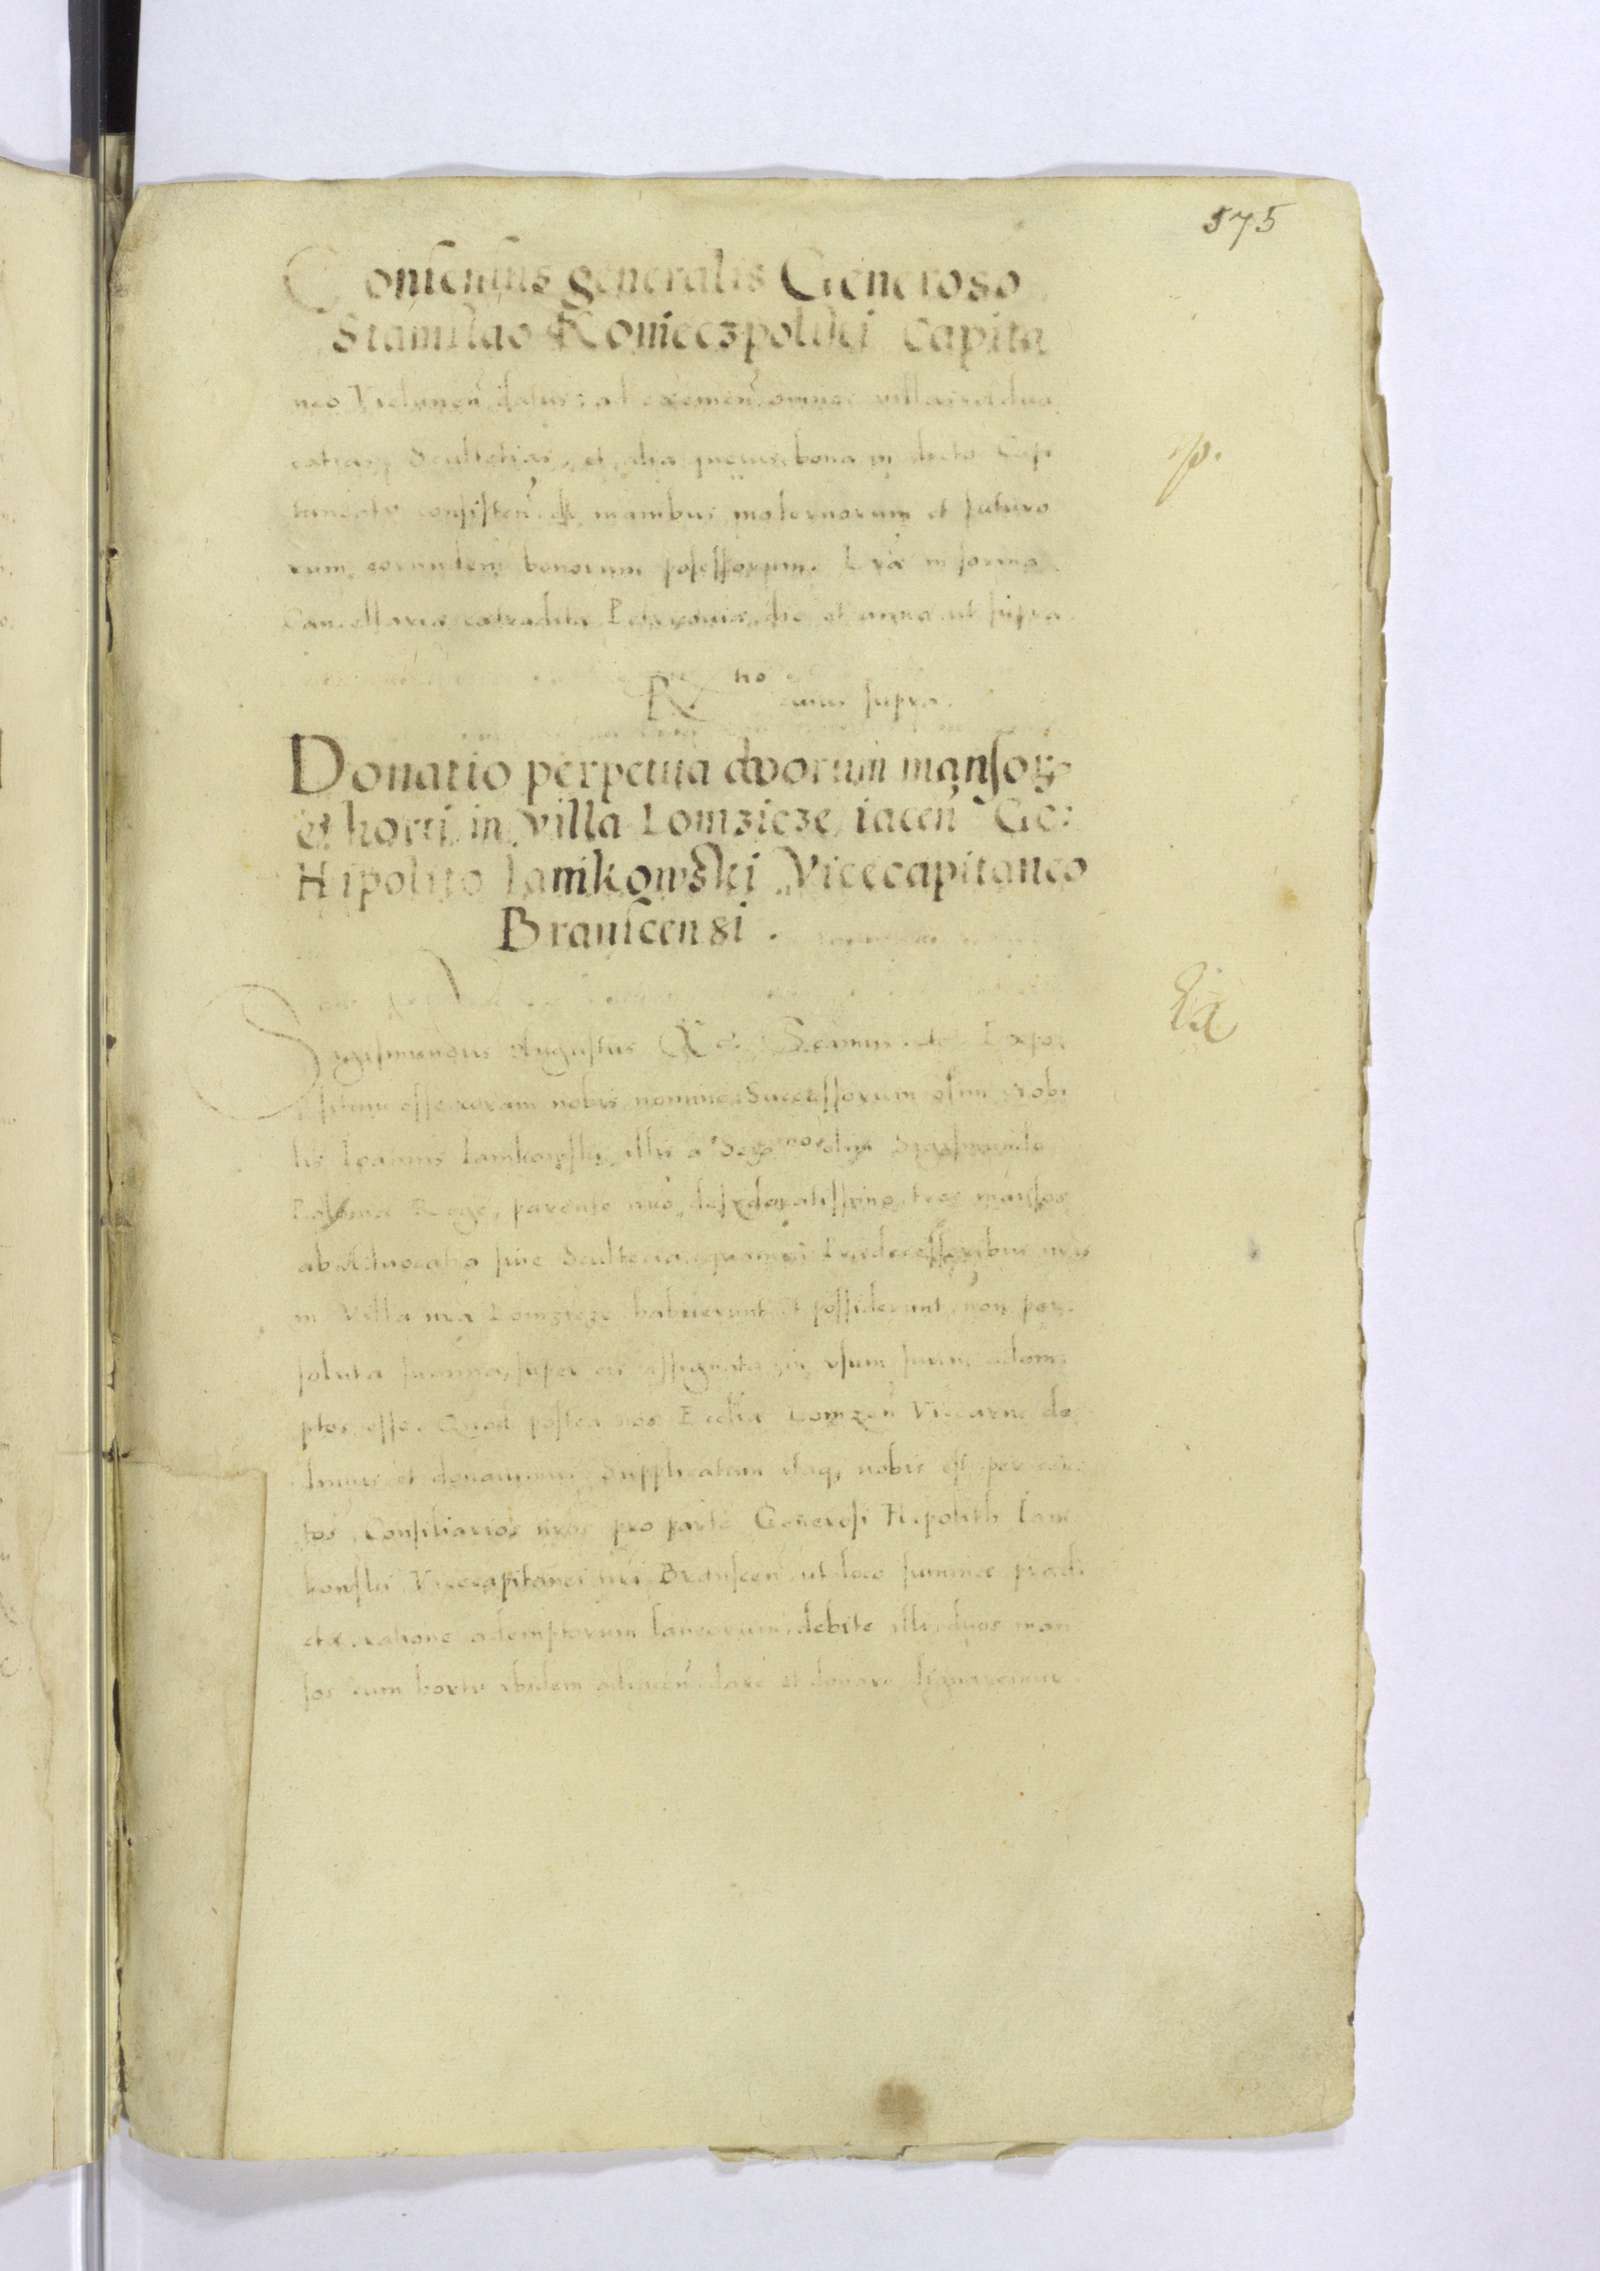 575
Consensus generalis Generoso
Stanislao Konieczpolski Capita
neo Vielunen datus: ad eximen: omnes villas advo
catias, Scultetias, et alia quevis bona in dicto Capi
taneatu consisten de manibus modernorum et futuro
rum eorundem bonorum possessorum. Lrae in forma
Cancellariae extradita Petrcoviae, die et anno ut supra.
Rtio cuius supra.
Donatio perpetua dvorum mansor
et horti in Villa Lomzicze iacen Ge:
Hipolito Iamkowski Vicecapitaneo
Branscensi.
Sigismundus Augustus &c: Expo
situm esse coram nobis nomine Successorum olim nobi
lis Ioannis Iamkowski, illis a Sermo olim Sigismundo
Poloniae Rege, parente nro desyderatissimo tres mansos
ab Advocatia sive Scultecia, quam
in Villa nra Lomzicze habuerunt et possiderunt, non per
soluta summa, super eis assignata in usum suum adem
ptos esse. Quod postea nos Ecclia Lomzen Vicarys de
dimus et donavimus. Supplicatum itaq, nobis est per cer
tos Consiliarios nros pro parte Generosi Hipolith Iam
kowski Vicecapitanei nri Branscen ut loco summae praedi
ctae, ratione ademptorum laneorum, debite illi, duos man
sos cum horto ibidem adiacen dare et donare dignaremur